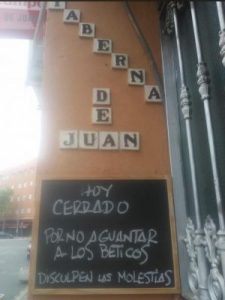 TABERNA
DE
JUAN
HOY
CERRADO
POR NO AGUANTAR
A LOS BETICOS
DISCULPEN LAS MOLESTIAS